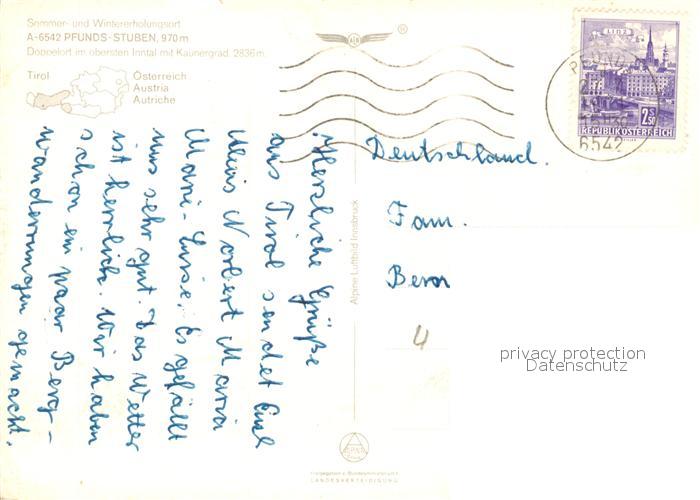 Sommer- und Wintererholungsort
A-6542 PFUNDS-STUBEN, 970 m
Doppelort im obersten Inntal mit Kaunergrad, 2836 m
Tirol
Österreich
Austria
Autriche
®
LINZ
2.50
REPUBLIK ÖSTERREICH
PFUNDS
6542
Herzliche Grüße
aus Tirol sendet Euch
Norbert Maria
Mari-Luise. Es gefällt
uns sehr gut. Das Wetter
ist herrlich. Wir haben
schon ein paar Berg-
wanderungen gemacht.
Alpine Luftbild Innsbruck
Deutschland.
Fam.
4
privacy protection
Datenschutz
LANDESVERTEIDIGUNG